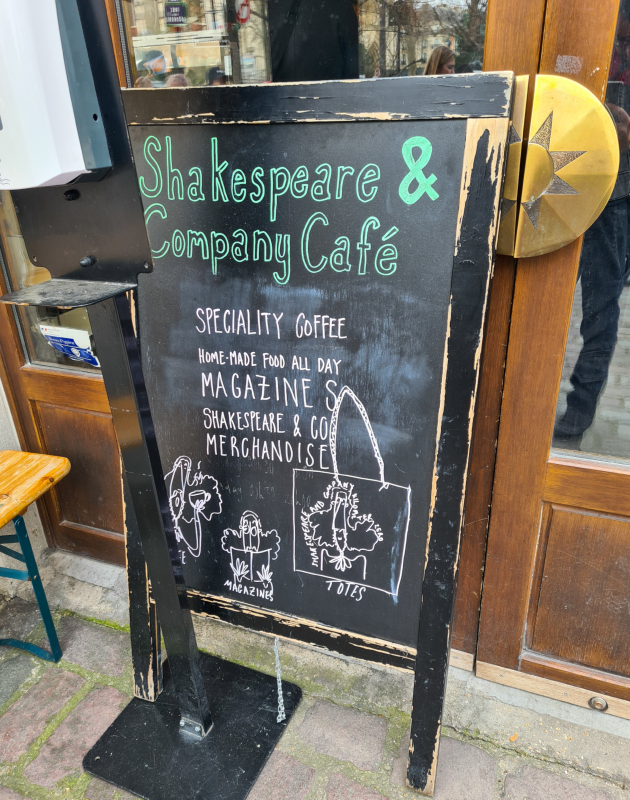 Shakespeare &
Company Café
SPECIALITY COFFEE
HOME-MADE FOOD ALL DAY
MAGAZINES
SHAKESPEARE & CO
MERCHANDISE
MAGAZINES
TOTES